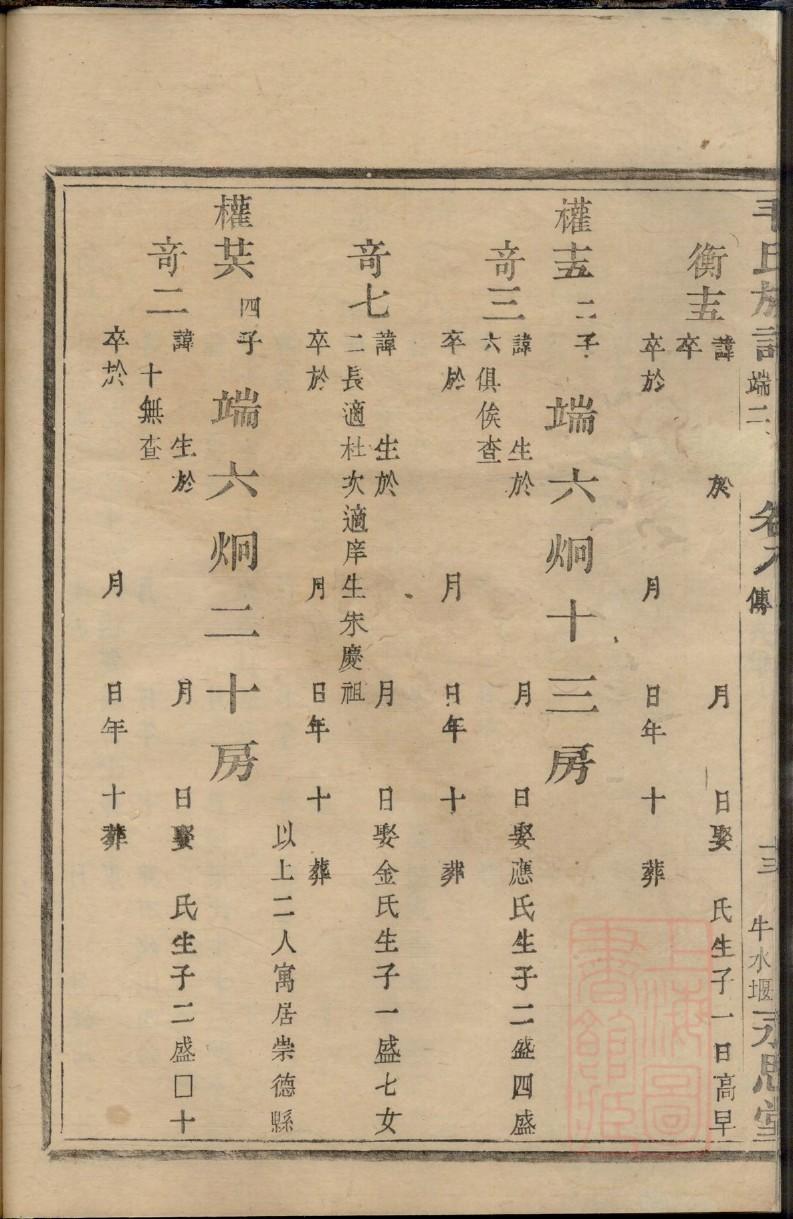 毛氏族譜 端二 卷八 傳 十三 牛水堰 永思堂
衡十五 諱 於 月 日娶 氏生子一日高早
卒
卒於 月 日年 十 葬
權十五 二子 端六炯十三房
奇三 諱 生於 月 日娶應氏生子二盛四盛
六俱俟查
卒於 月 日年 十 葬
奇七 諱 生於 月 日娶金氏生子一盛七女
二長適杜次適庠生朱慶祖
卒於 月 日年 十 葬
以上二人寓居崇德縣
權十六 四子 端六炯二十房
奇二 諱 生於 月 日娶 氏生子二盛囗十
十無查
卒於 月 日年 十 葬
上海圖書館藏